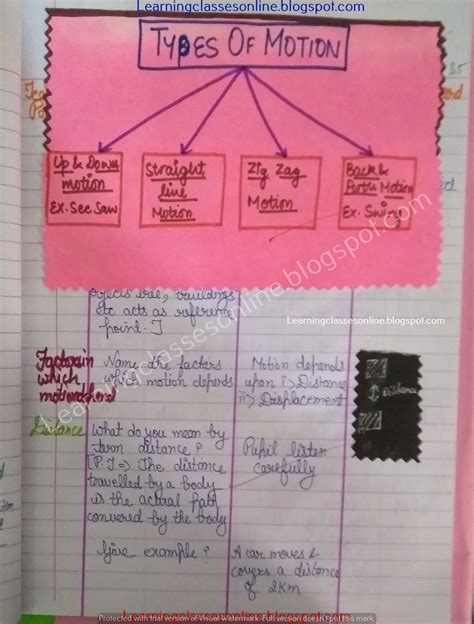 Learningclassesonline.blogspot.com
TYPES OF MOTION
Up & Down
motion
Ex. See Saw
Straight
line
Motion
Zig Zag
Motion
Back &
Forth Motion
Ex. Swing
Learningclassesonline.blogspot.com
objects tree, buildings
etc acts as reference
point. I
Learningclassesonline.blogspot.com
Factors in
which
motion depend
Name the factors
which motion depends
Motion depends
upon i) Distance
ii) Displacement
Distance
Distance
What do you mean by
term distance?
P.T => The distance
travelled by a body
is the actual path
convered by the body
Pupil listen
carefully
Give example?
A car moves &
covers a distance
of 2Km
Learningclassesonline.blogspot.com
Protected with trial version of Visual Watermark. Full version doesn't put this mark.